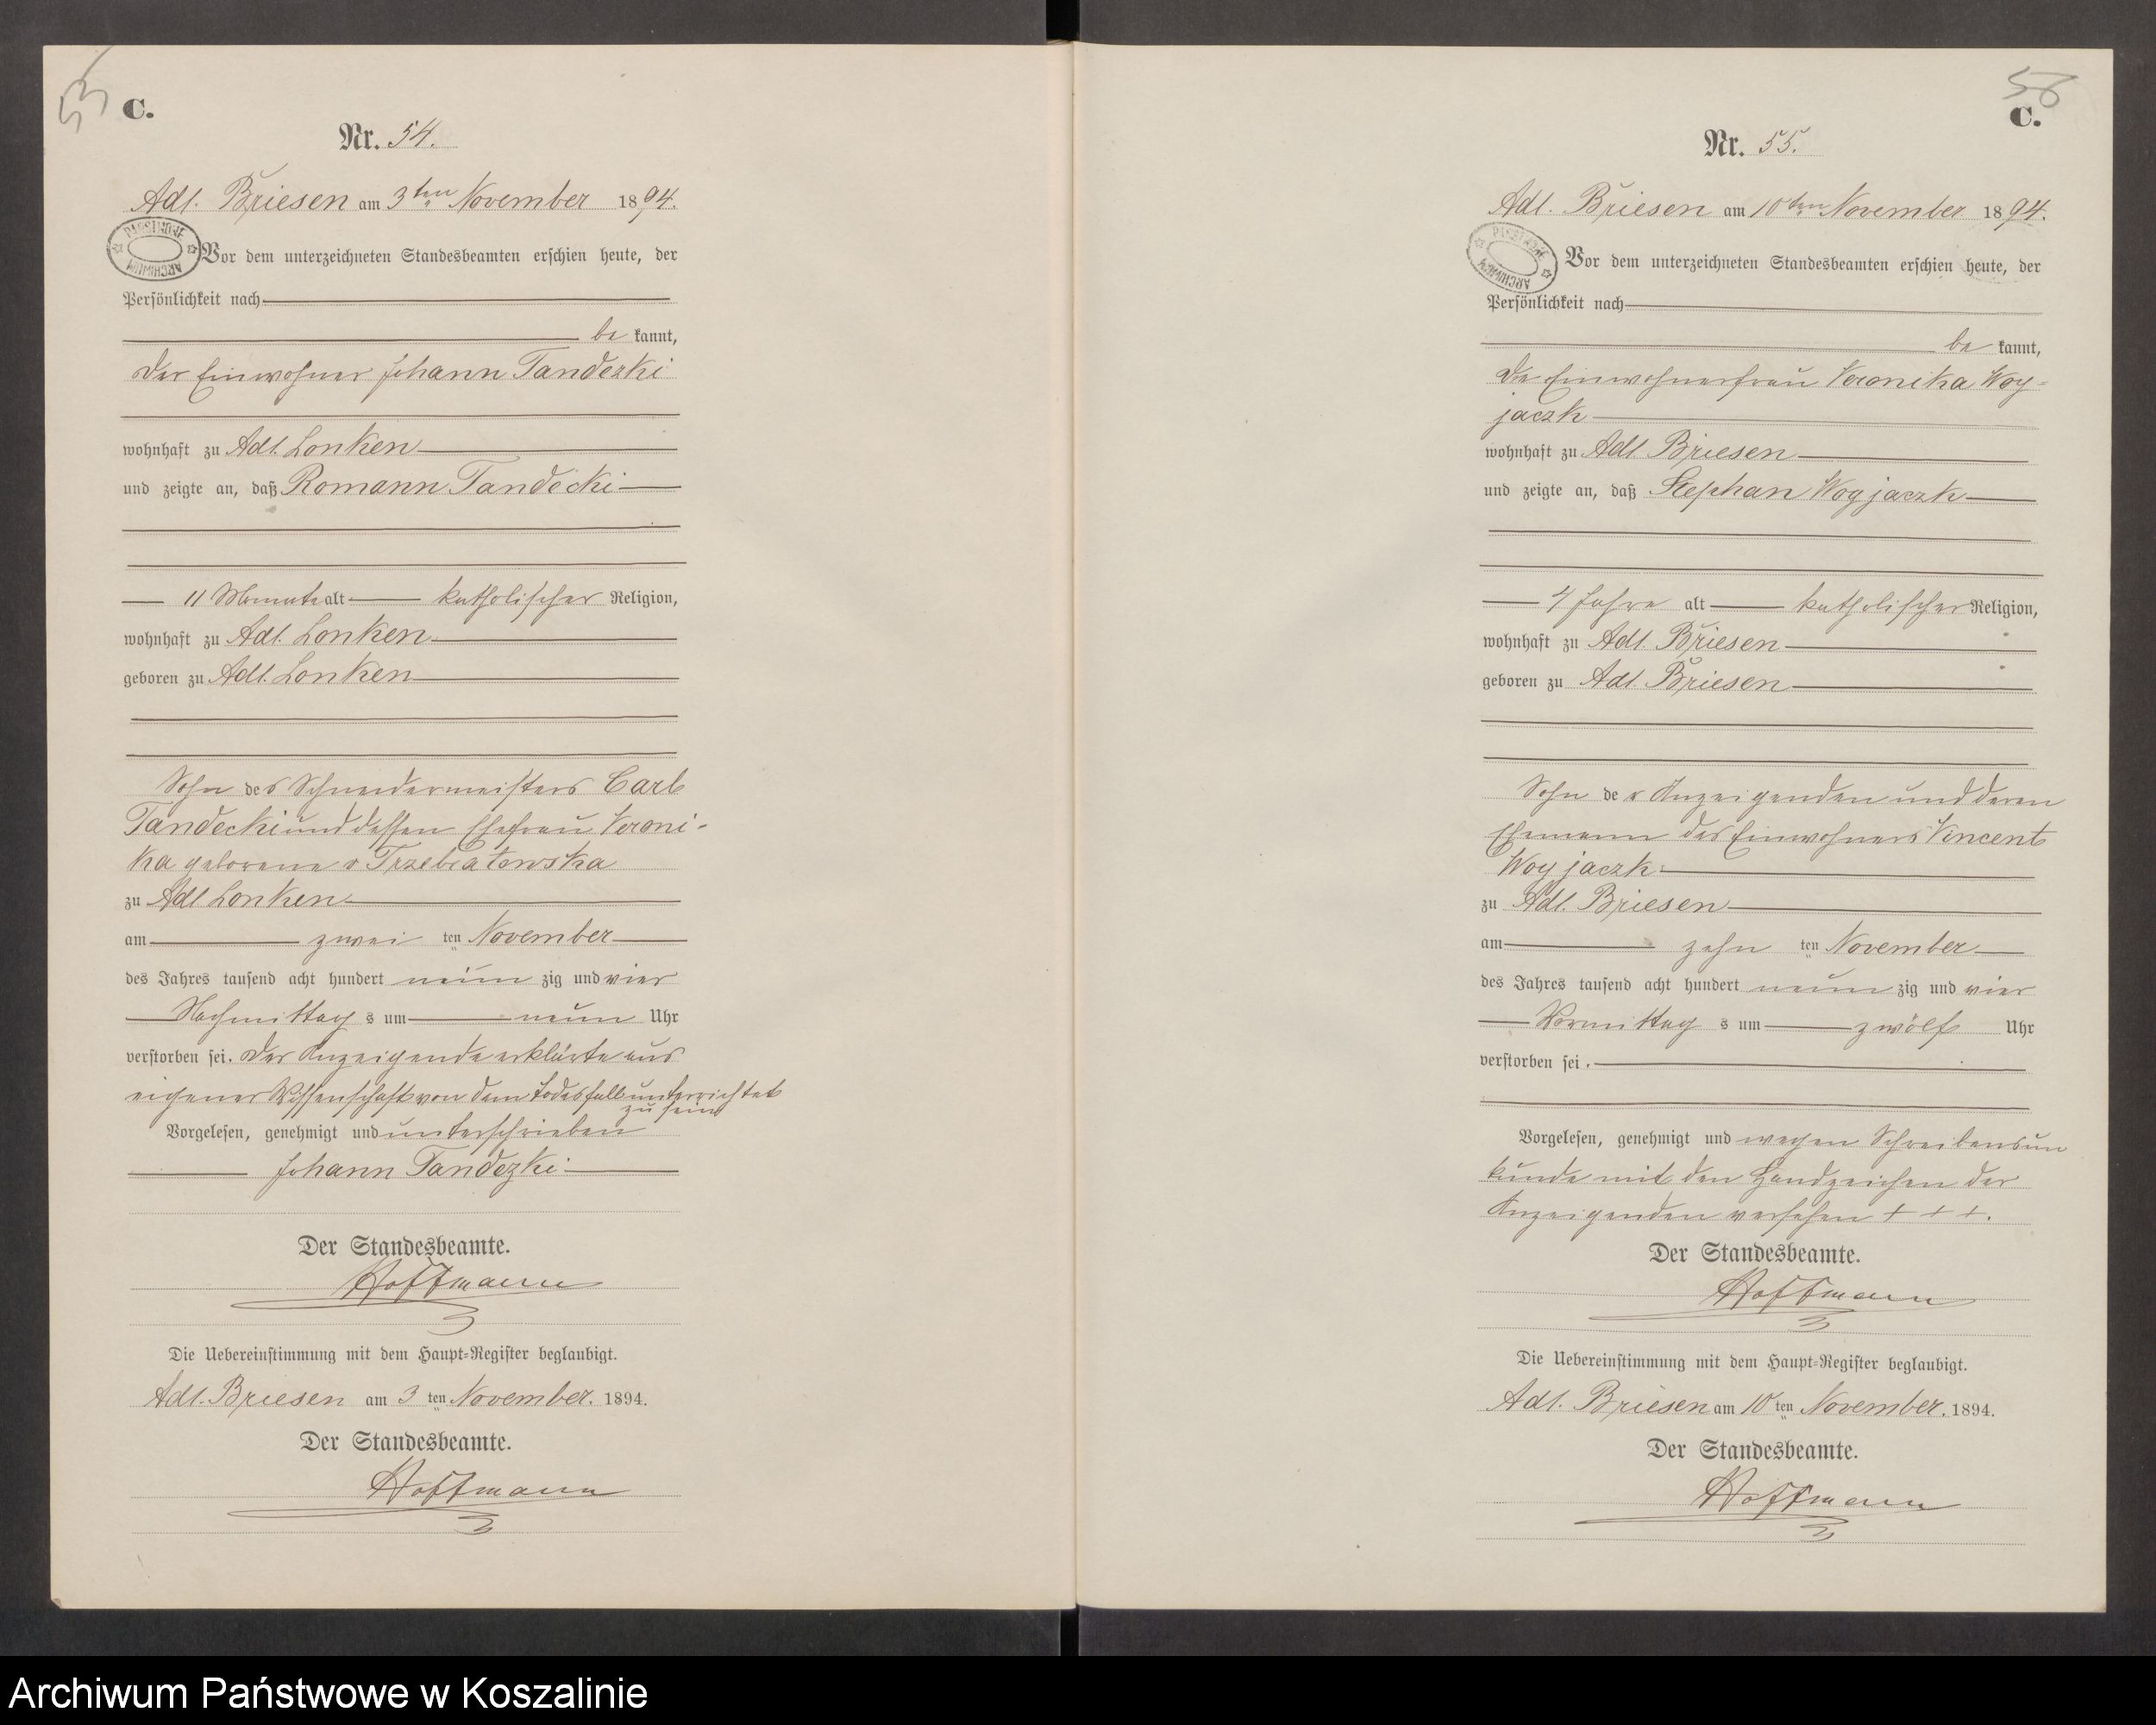 53
C.
Nr. 54.
Adl. Briesen am 3ten November 1894.
PAŃSTWOWE ARCHIWUM
Vor dem unterzeichneten Standesbeamten erschien heute, der
Persönlichkeit nach
be kannt,
der Einwohner Johann Tandezki
wohnhaft zu Adl. Lonken
und zeigte an, daß Romann Tandecki
11 Monate alt katholischer Religion,
wohnhaft zu Adl. Lonken
geboren zu Adl. Lonken
Sohn des Schneidermeisters Carl
Tandecki und dessen Ehefrau Veroni-
ka geborene v Trzebiatowska
zu Adl Lonken
am zwei ten November
des Jahres tausend acht hundert neun zig und vier
Nachmittag s um neun Uhr
verstorben sei. Der Anzeigende erklärte aus
eigener Wissenschaft von dem Todesfall unterrichtet
zu sein
Vorgelesen, genehmigt und unterschrieben
Johann Tandezki
Der Standesbeamte.
Hoffmann
Die Uebereinstimmung mit dem Haupt-Register beglaubigt.
Adl. Briesen am 3 ten November. 1894.
Der Standesbeamte.
Hoffmann
C.
Nr. 55.
Adl. Briesen am 10ten November 1894.
PAŃSTWOWE ARCHIWUM
Vor dem unterzeichneten Standesbeamten erschien heute, der
Persönlichkeit nach
be kannt,
die Einwohnerfrau Veronika Woy-
jaczk
wohnhaft zu Adl Briesen
und zeigte an, daß Stephan Woyjaczk
4 Jahre alt katholischer Religion,
wohnhaft zu Adl. Briesen
geboren zu Adl. Briesen
Sohn der Anzeigenden und deren
Ehemann des Einwohners Vincent
Woyjaczk
zu Adl. Briesen
am zehn ten November
des Jahres tausend acht hundert neun zig und vier
Vormittag s um zwölf Uhr
verstorben sei.
Vorgelesen, genehmigt und wegen Schreibensun
kunde mit den Handzeichen der
Anzeigenden versehen + + +.
Der Standesbeamte.
Hoffmann
Die Uebereinstimmung mit dem Haupt-Register beglaubigt.
Adl. Briesen am 10 ten November. 1894.
Der Standesbeamte.
Hoffmann
Archiwum Państwowe w Koszalinie